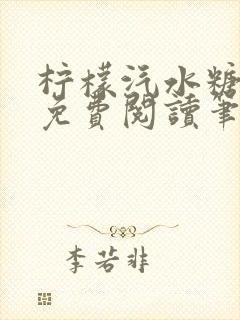 柠檬汽水糖
免費閱讀筆
李若非